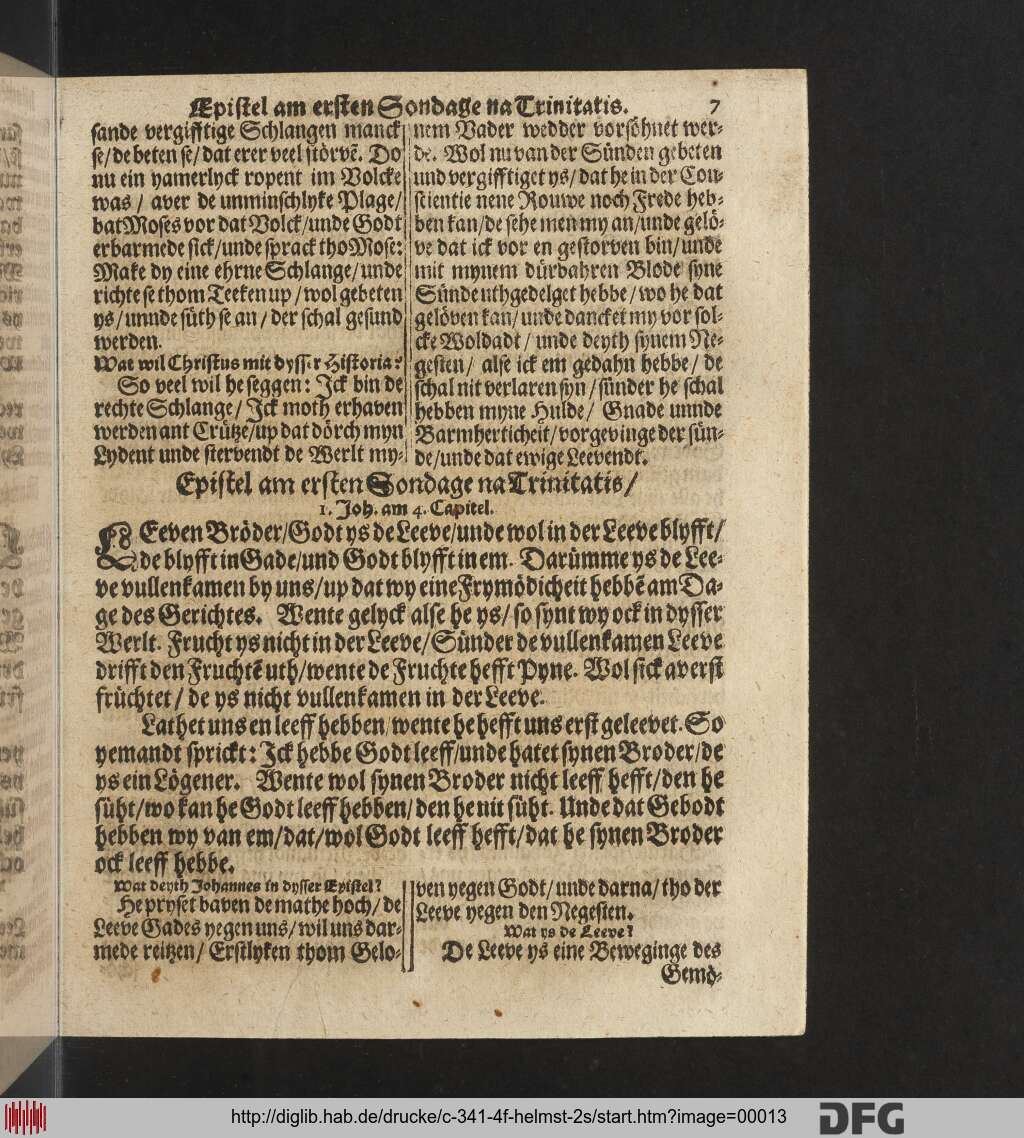 Epistel am ersten Sondage na Trinitatis. 7
sande vergifftige Schlangen manck
se/ de beten se/ dat erer veel störvẽ. Do
nu ein yamerlyck ropent im Volcke
was / aver de unminschlyke Plage/
bat Moses vor dat Volck/ unde Godt
erbarmede sick/ unde sprack tho Mose:
Make dy eine ehrne Schlange/ unde
richte se thom Teeken up / wol gebeten
ys/ unnde süth se an / der schal gesund
werden.
Wat wil Christus mit dysser Historia?
So veel wil he seggen: Jck bin de
rechte Schlange/ Jck moth erhaven
werden ant Crütze/ up dat dörch myn
Lydent unde stervendt de Werlt my-
nem Vader wedder vorsöhnet wer-
de. Wol nu van der Sünden gebeten
und vergifftiget ys/ dat he in der Con-
scientie nene Rouwe noch Frede heb-
ben kan/ de sehe men my an/ unde gelö-
ve dat ick vor en gestorven bin/ unde
mit mynem dürbahren Blode syne
Sünde uthgedelget hebbe/ wo he dat
gelöven kan/ unde dancket my vor sol-
cke Woldadt / unde deyth synem Ne-
gesten/ alse ick em gedahn hebbe/ de
schal nit verlaren syn / sünder he schal
hebben myne Hulde/ Gnade unnde
Barmherticheit/ vorgevinge der sün-
de/ unde dat ewige Leevendt.
Epistel am ersten Sondage na Trinitatis/
1. Joh. am 4. Capitel.
LEeven Bröder/ Godt ys de Leeve/ unde wol in der Leeve blyfft/
de blyfft in Gade/ und Godt blyfft in em. Darümme ys de Lee-
ve vullenkamen by uns/ up dat wy eine Frymödicheit hebbẽ am Da-
ge des Gerichtes. Wente gelyck alse he ys/ so synt wy ock in dysser
Werlt. Frucht ys nicht in der Leeve/ Sünder de vullenkamen Leeve
drifft den Fruchtẽ uth/ wente de Fruchte hefft Pyne. Wol sick averst
früchtet / de ys nicht vullenkamen in der Leeve.
Lathet uns en leeff hebben/ wente he hefft uns erst geleevet. So
yemandt sprickt: Jck hebbe Godt leeff/ unde hatet synen Broder/ de
ys ein Lögener. Wente wol synen Broder nicht leeff hefft/ den he
süht/ wo kan he Godt leeff hebben/ den he nit süht. Unde dat Gebodt
hebben wy van em/ dat/ wol Godt leeff hefft/ dat he synen Broder
ock leeff hebbe.
Wat deyth Johannes in dysser Epistel?
He pryset baven de mathe hoch/ de
Leeve Gades yegen uns/ wil uns dar-
mede reitzen/ Erstlyken thom Gelo-
ven yegen Godt/ unde darna/ tho der
Leeve yegen den Negesten.
Wat ys de Leeve?
De Leeve ys eine Beweginge des
Gemö-
http://diglib.hab.de/drucke/c-341-4f-helmst-2s/start.htm?image=00013
DFG